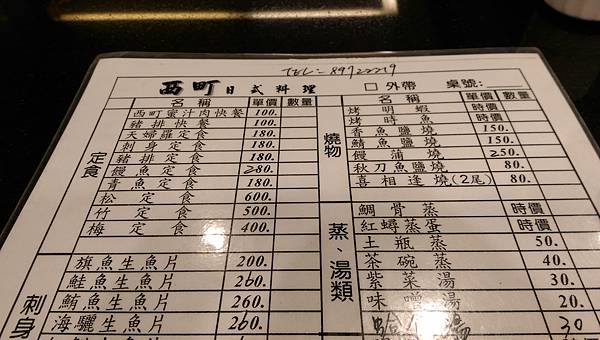 TEL:89722219
西町日式料理
□外帶 桌號:
名稱 單價 數量
西町蜜汁肉快餐 100.
豬排快餐 100.
天婦羅定食 180.
刺身定食 180.
豬排定食 180.
饅魚定食 280.
青魚定食 180.
松定食 600.
竹定食 500.
梅定食 400.
定食
旗魚生魚片 200.
鮭魚生魚片 260.
鮪魚生魚片 260.
海驪生魚片 260.
刺身
名稱 單價 數量
烤明蝦 時價
烤時魚 時價
香魚鹽燒 150.
鯖魚鹽燒 150.
饅蒲燒 250.
秋刀魚鹽燒 80.
喜相逢燒(2尾) 80.
燒物
鯛骨蒸 時價
紅蟳蒸蛋 時價
土瓶蒸 50.
茶碗蒸 40.
紫菜湯 30.
味噌湯 20.
30
蒸、湯類